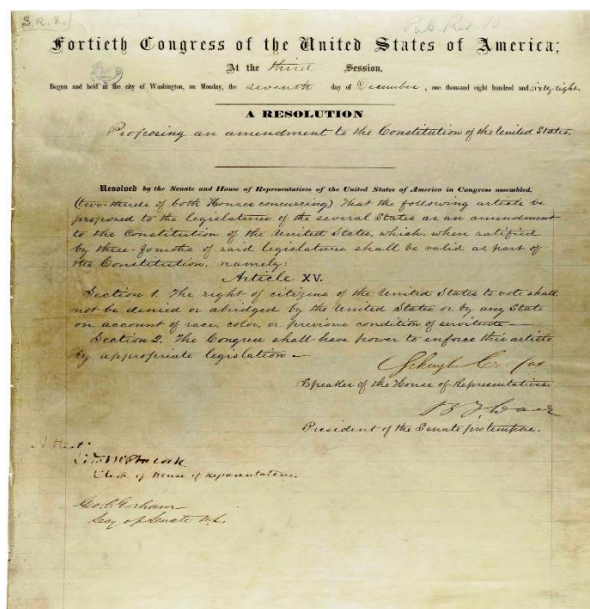 S.R.8.
Pub. Res 10
Fortieth Congress of the United States of America;
At the third Session,
Begun and held at the city of Washington, on Monday, the seventh day of December, one thousand eight hundred and sixty-eight.
A RESOLUTION
Proposing an amendment to the Constitution of the United States.
Resolved by the Senate and House of Representatives of the United States of America in Congress assembled,
(two-thirds of both Houses concurring) That the following article be
proposed to the legislatures of the several States as an amendment
to the Constitution of the United States, which, when ratified
by three-fourths of said legislatures shall be valid as part of
the Constitution, namely:
Article XV.
Section 1. The right of citizens of the United States to vote shall
not be denied or abridged by the United States or by any State
on account of race, color, or previous condition of servitude—
Section 2. The Congress shall have power to enforce this article
by appropriate legislation—
Schuyler Colfax
Speaker of the House of Representatives.
B F Wade
President of the Senate pro tempore.
Attest:
Clerk of House of Representatives.
Geo. C. Gorham
Secy of Senate U.S.